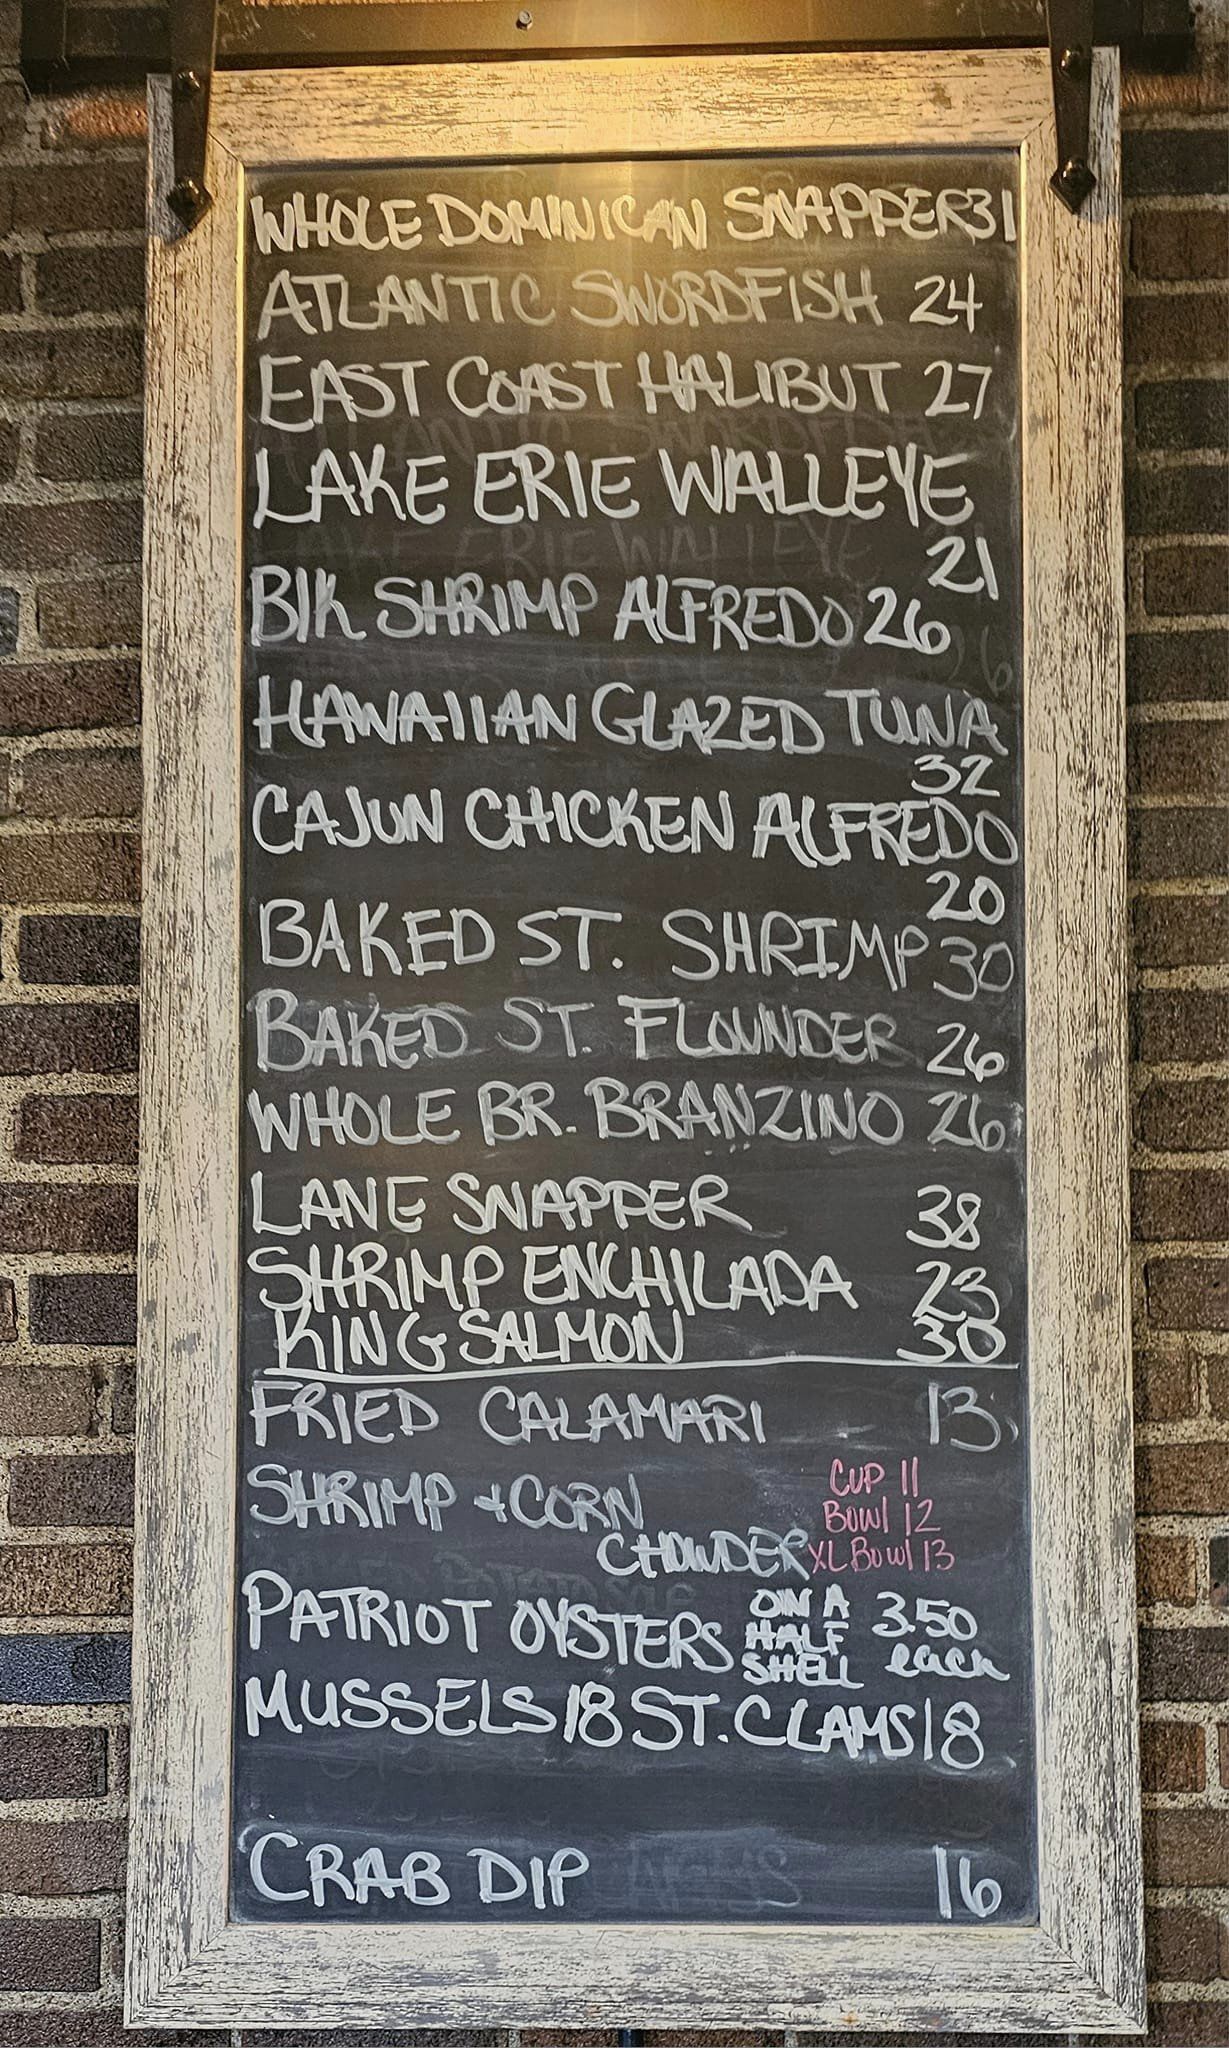 WHOLE DOMINICAN SNAPPER 31
ATLANTIC SWORDFISH 24
EAST COAST HALIBUT 27
LAKE ERIE WALLEYE
21
Blk SHRIMP ALFREDO 26
HAWAIIAN GLAZED TUNA
32
CAJUN CHICKEN ALFREDO
20
BAKED ST. SHRIMP 30
BAKED ST. FLOUNDER 26
WHOLE BR. BRANZINO 26
LANE SNAPPER 38
SHRIMP ENCHILADA 23
KING SALMON 30
FRIED CALAMARI 13
SHRIMP + CORN
CHOWDER
CUP 11
Bowl 12
XL Bowl 13
PATRIOT OYSTERS ON A HALF SHELL 3.50 each
MUSSELS 18 ST. CLAMS 18
CRAB DIP 16